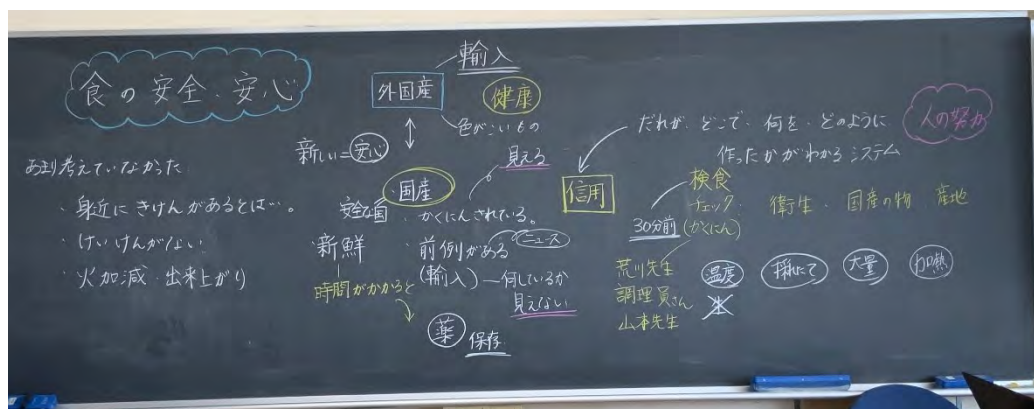 食の安全・安心
あまり考えていなかった
・身近にきけんがあるとは…。
・けいけんがない
・火加減・出来上がり
輸入
外国産
健康
色がこいもの
新しい=安心
見える
国産
安全な国
・かくにんされている。
・新鮮
・前例がある
ニュース
(輸入)―何しているか
見えない
時間がかかると
薬 保存
だれが、どこで、何を、どのように
作ったかがわかるシステム
人の努力
信用
検食
チェック
(かくにん)
30分前
衛生・国産の物 産地
荒川先生
調理員さん
山本先生
温度
生
採れたて
大量
加熱